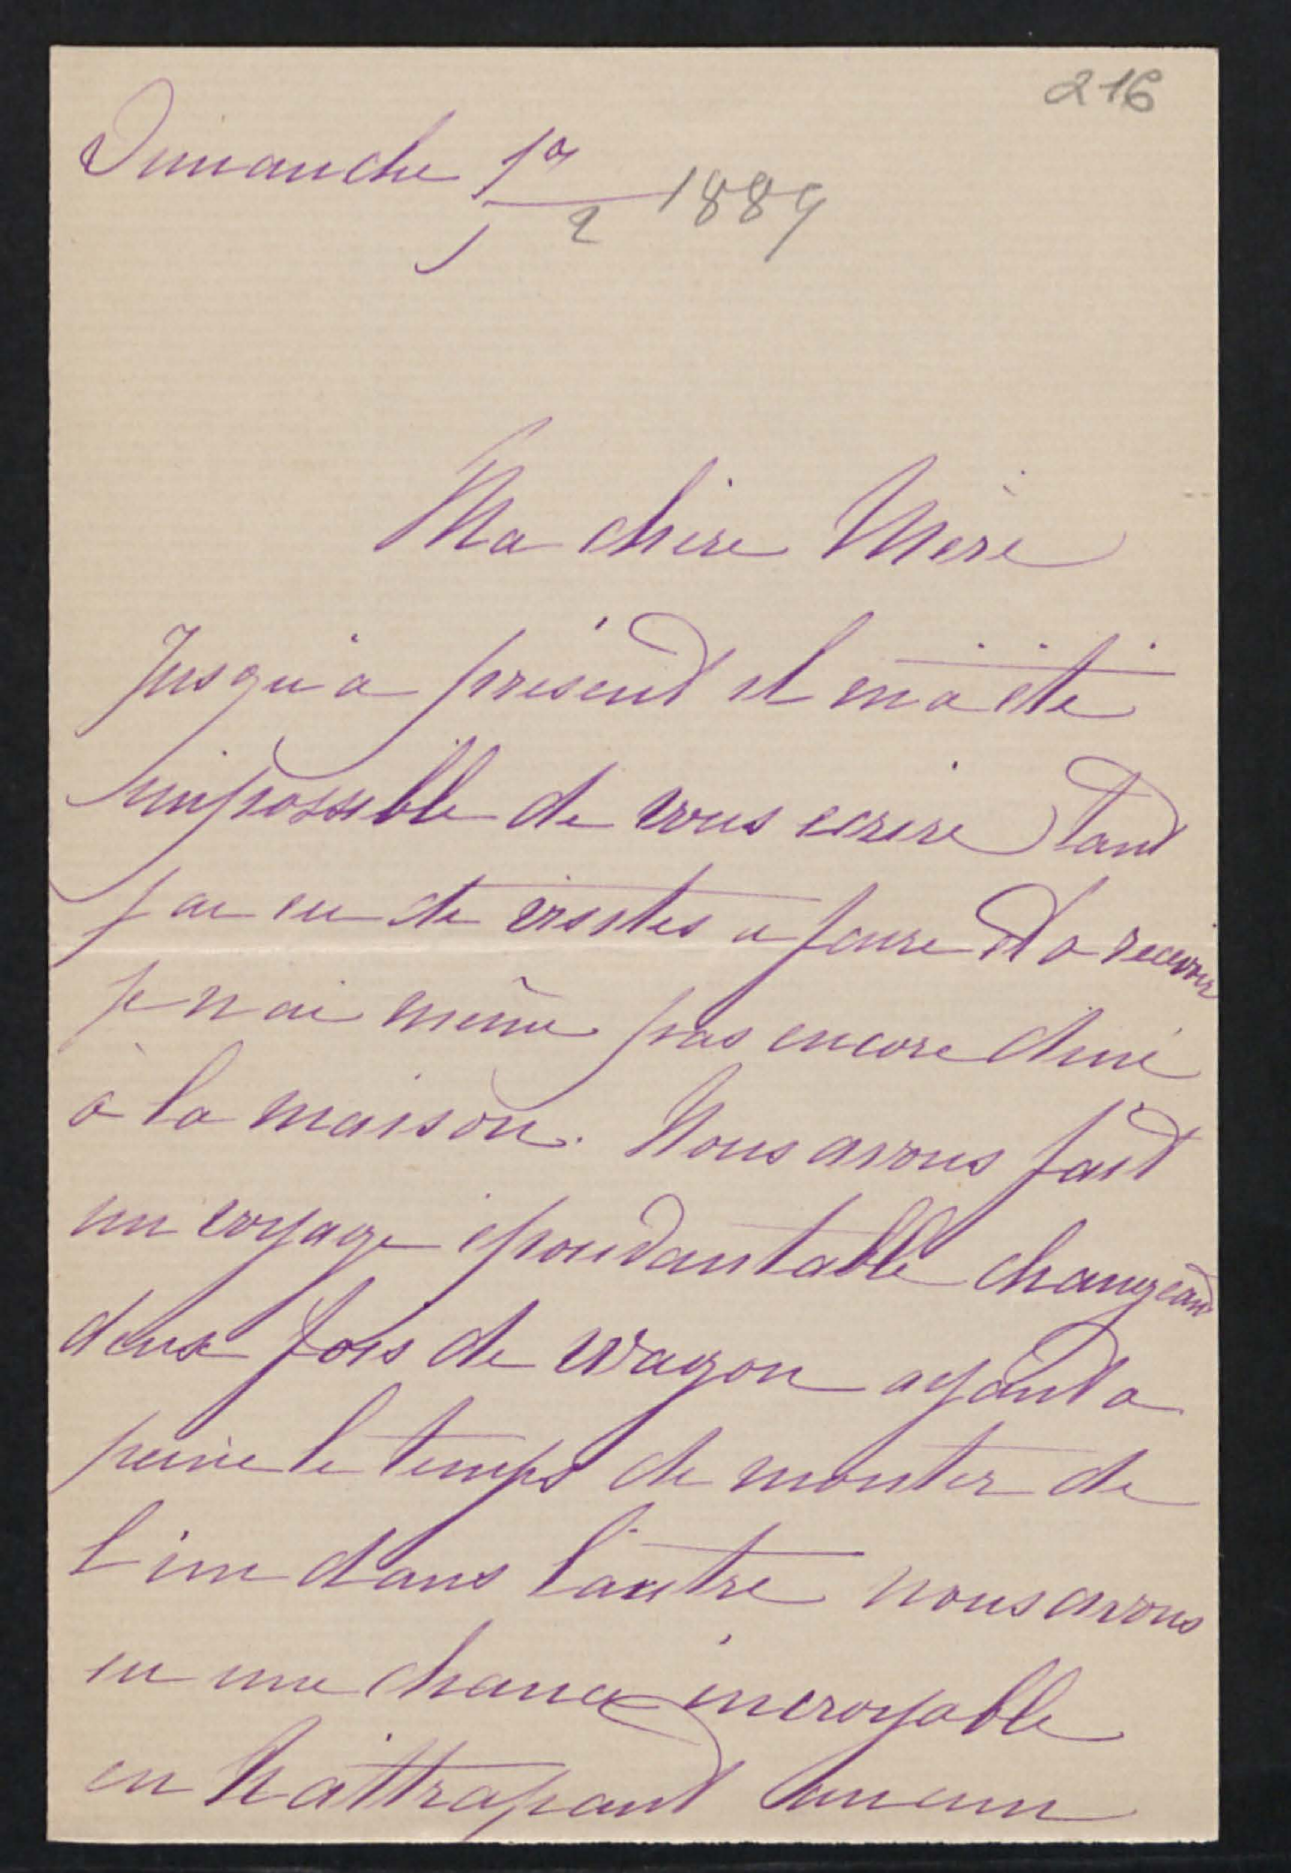 216
Dimanche 17
2 1889
Ma chère Mère
Jusqu'à présent il m'a été
impossible de vous écrire tant
j'ai eu de visites à faire et à recevoir
je n'ai même pas encore diné
à la maison. Nous avons fait
un voyage épouvantable changeant
deux fois de wagon ayant à
peine le temps de monter de
l'un dans l'autre nous avons
eu une chance incroyable
en n'attrapant aucun